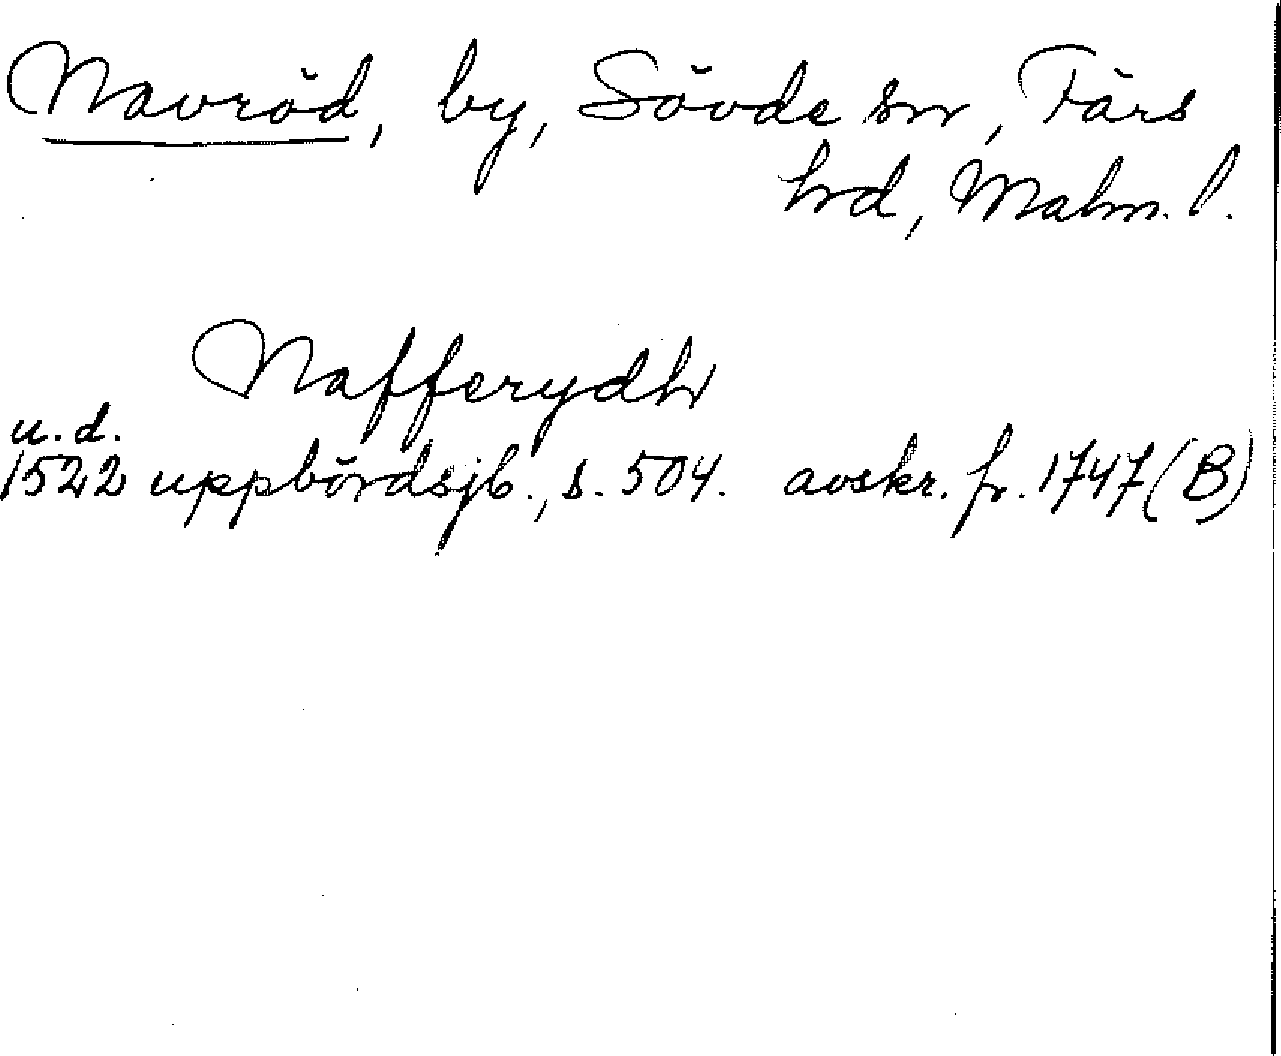 Navröd, by, Sövde sn, Färs
hd, Malm. l.
Nafferydh
u. d.
1522 uppbördsjb., s. 504. avskr. fr. 1747 (B)